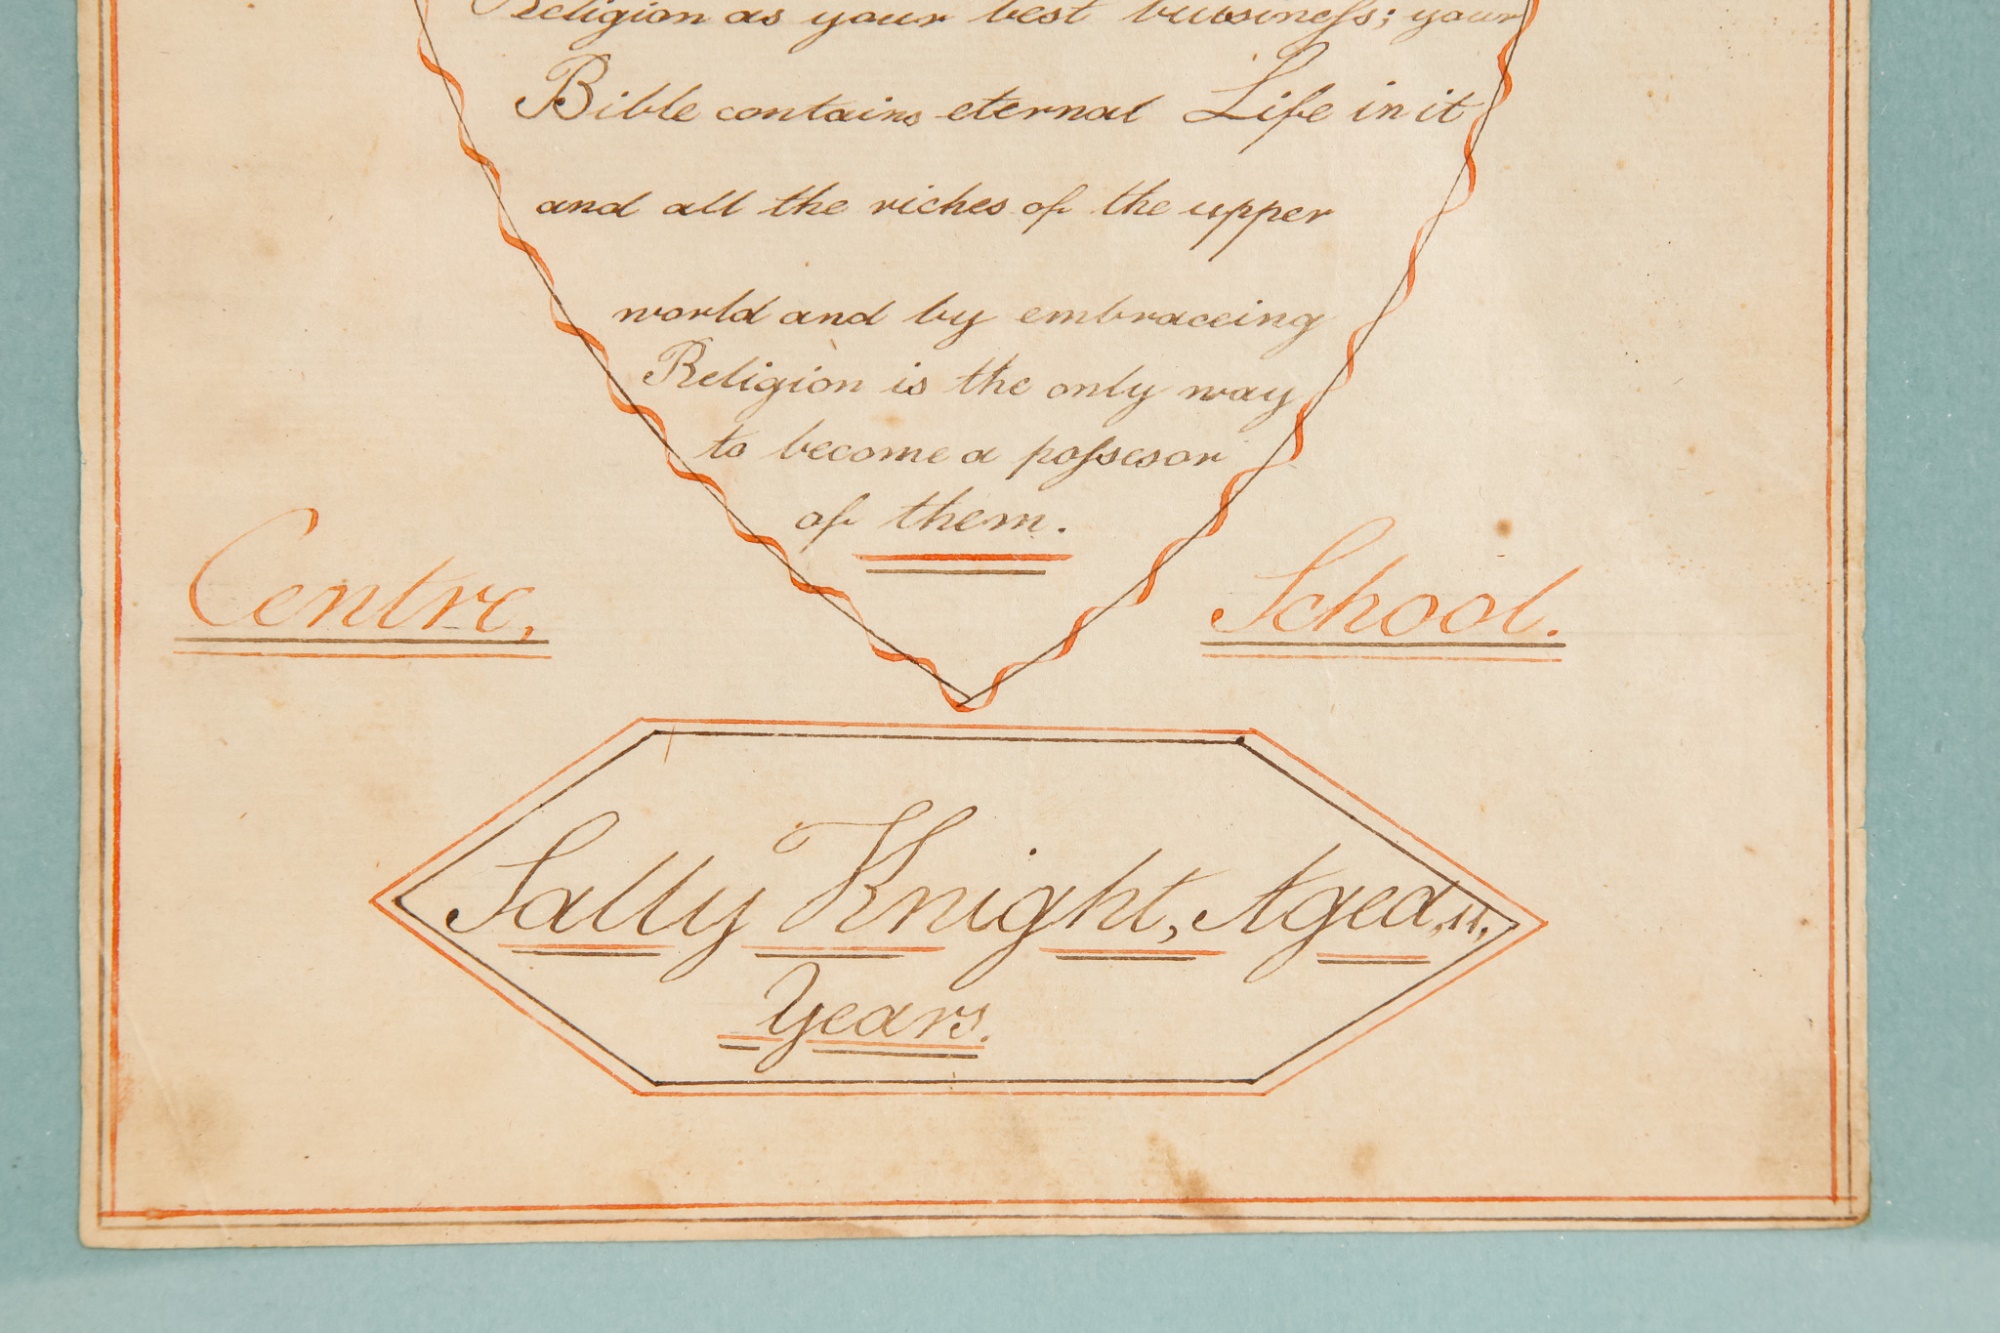 Religion as your best bussineſs; your
Bible contains eternal Life in it
and all the riches of the upper
world and by embraceing
Religion is the only way
to become a poſsesor
of them.
Centre, School.
Sally Knight, Aged, 11,
Years.